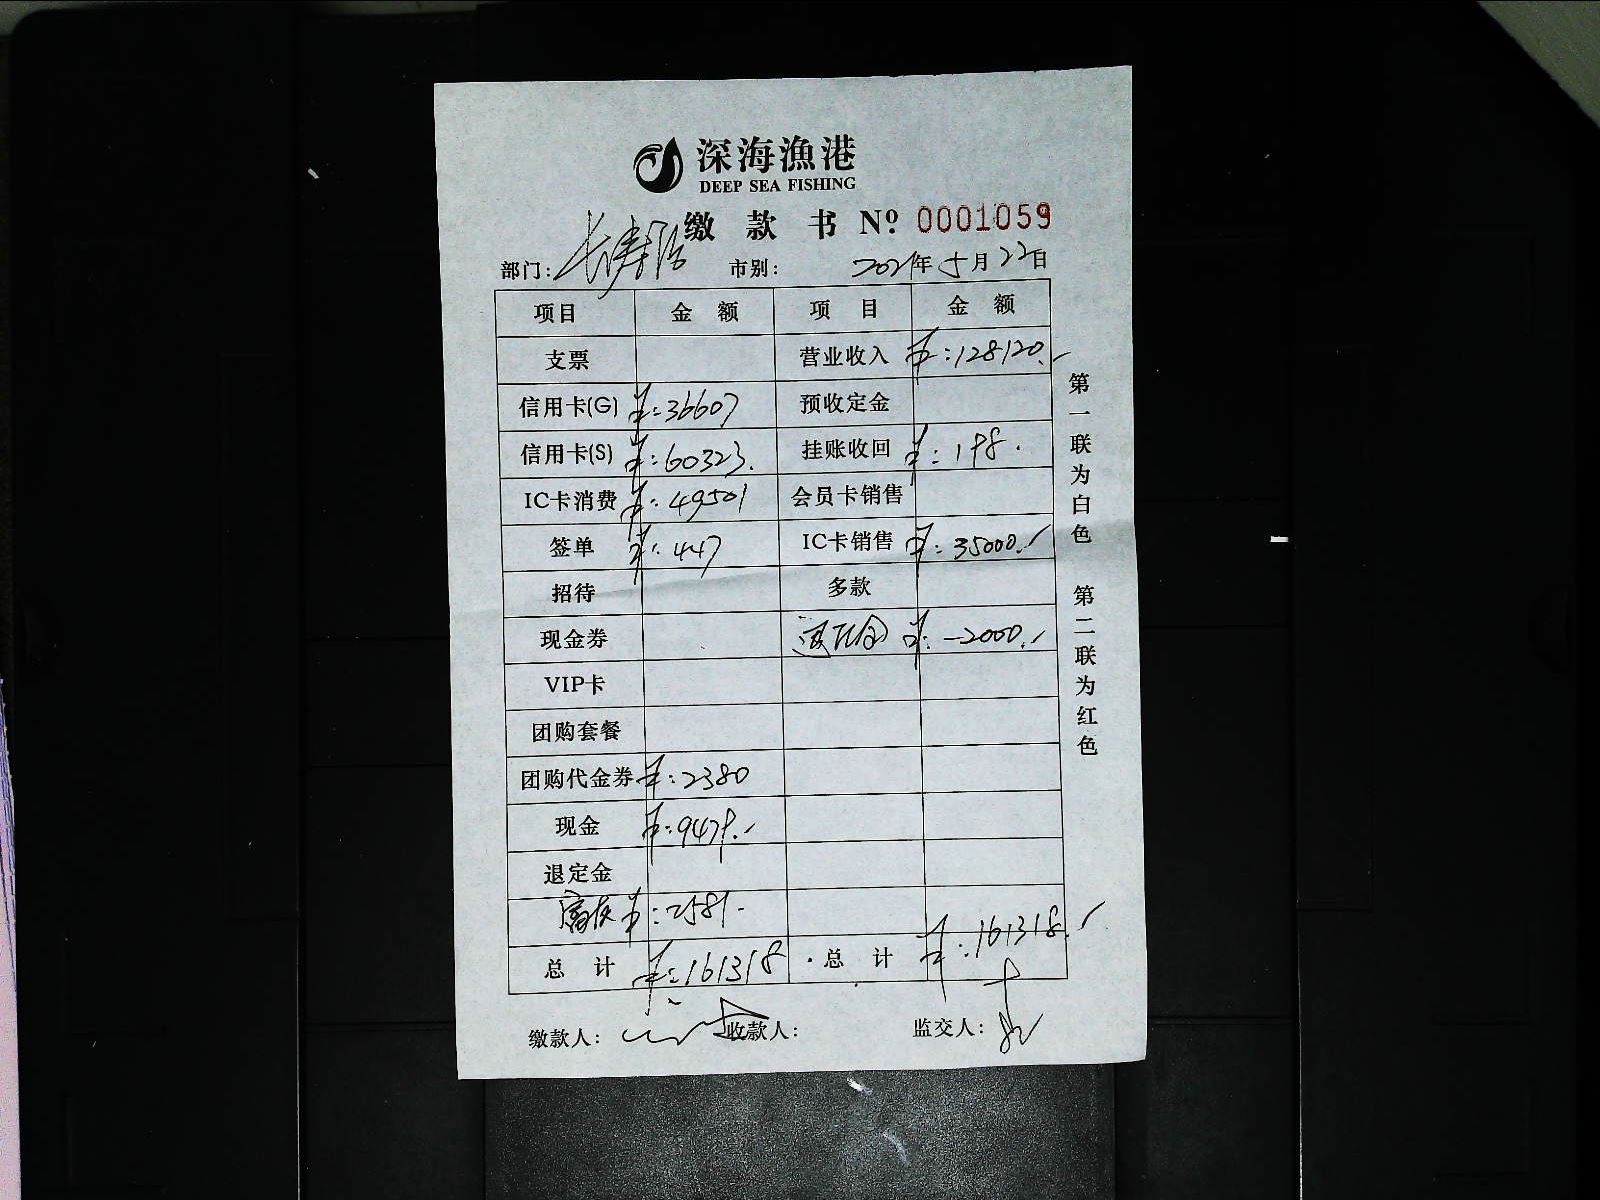 深海漁港
DEEP SEA FISHING
缴 款 书 Nº 0001059
部门: 长寿路 市别: 2021年5月22日
项目 金 额 项 目 金 额
支票 营业收入 ¥:128120.
信用卡(G) ¥:36607 预收定金
信用卡(S) ¥:60323. 挂账收回 ¥:198.
IC卡消费 ¥:49501 会员卡销售
签单 ¥:447 IC卡销售 ¥:35000.
招待 多款
现金券 ¥:-2000.
VIP卡
团购套餐
团购代金券 ¥:2380
现金 ¥:9479.
退定金
¥:2581.
总 计 ¥:161318 总 计 ¥:161318.
缴款人: 收款人: 监交人:
第一联为白色 第二联为红色